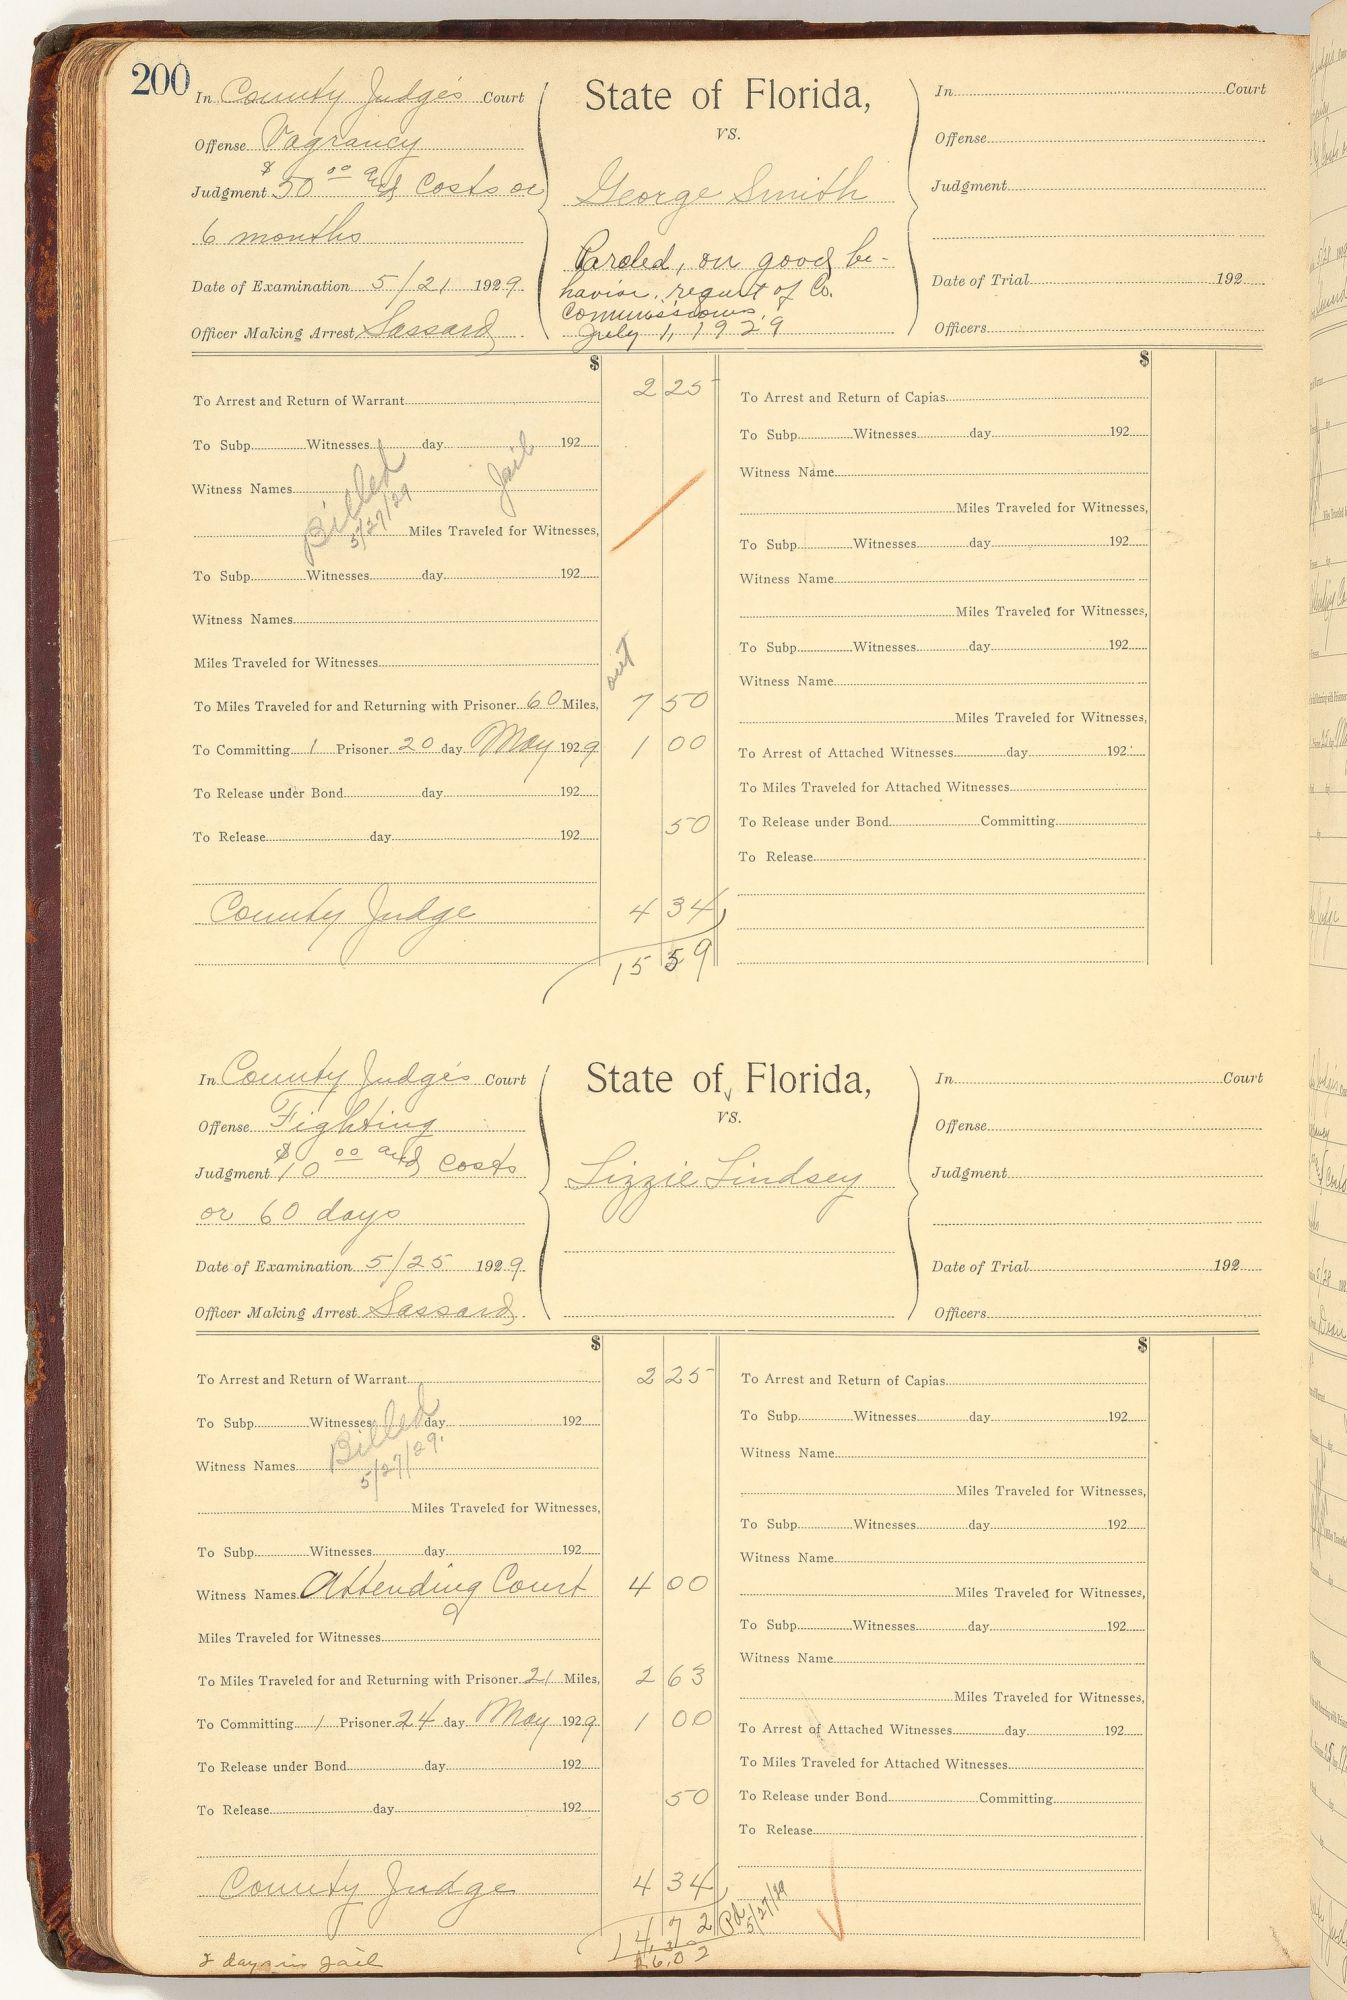 200
In County Judge's Court
Offense Vagrancy
Judgment $50 00 and Costs or
6 months
Date of Examination 5/21 1929
Officer Making Arrest Sassard
State of Florida,
vs.
George Smith
Paroled, on good be-
havior, request of Co.
Commissioners,
July 1, 1929
In Court
Offense
Judgment
Date of Trial 192
Officers
$
To Arrest and Return of Warrant 2 25
To Subp. Witnesses day 192
Witness Names
Billed
5/27/29
Jail
Miles Traveled for Witnesses,
To Subp. Witnesses day 192
Witness Names
Miles Traveled for Witnesses
out
To Miles Traveled for and Returning with Prisoner 60 Miles, 7 50
To Committing 1 Prisoner 20 day May 1929 1 00
To Release under Bond day 192
To Release day 192 50
County Judge 4 34
15 59
$
To Arrest and Return of Capias
To Subp. Witnesses day 192
Witness Name
Miles Traveled for Witnesses,
To Subp. Witnesses day 192
Witness Name
Miles Traveled for Witnesses,
To Subp. Witnesses day 192
Witness Name
Miles Traveled for Witnesses,
To Arrest of Attached Witnesses day 192
To Miles Traveled for Attached Witnesses
To Release under Bond Committing
To Release
In County Judge's Court
Offense Fighting
Judgment $10 00 and Costs
or 60 days
Date of Examination 5/25 1929
Officer Making Arrest Sassard
State of Florida,
vs.
Lizzie Lindsey
In Court
Offense
Judgment
Date of Trial 192
Officers
$
To Arrest and Return of Warrant 2 25
To Subp. Witnesses day 192
Billed
5/27/29.
Witness Names
Miles Traveled for Witnesses,
To Subp. Witnesses day 192
Witness Names Attending Court 4 00
Miles Traveled for Witnesses
To Miles Traveled for and Returning with Prisoner 21 Miles, 2 63
To Committing 1 Prisoner 24 day May 1929 1 00
To Release under Bond day 192
To Release day 192 50
County Judge 4 34
14 72
Pd
5/27/29
days in jail
$
To Arrest and Return of Capias
To Subp. Witnesses day 192
Witness Name
Miles Traveled for Witnesses,
To Subp. Witnesses day 192
Witness Name
Miles Traveled for Witnesses,
To Subp. Witnesses day 192
Witness Name
Miles Traveled for Witnesses,
To Arrest of Attached Witnesses day 192
To Miles Traveled for Attached Witnesses
To Release under Bond Committing
To Release